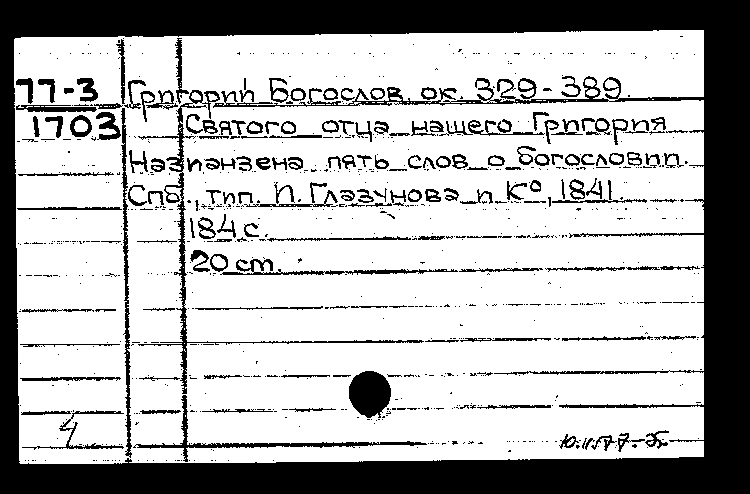 77-3 Григорий Богослов ок. 329-389.
1703 Святого отца нашего Григория
Назианзена пять слов о богословии.
Спб., тип. И. Глазунова и К°, 1841.
184 с.
20 cm.
4